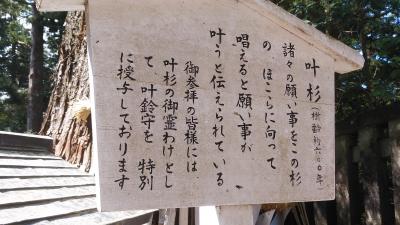 叶杉(樹齢約六〇〇年)
諸々の願い事をこの杉
の ほこらに向って
唱えると願い事が
叶うと伝えられている
御参拝の皆様には
叶杉の御霊わけとし
て 叶鈴守を 特別
に授与しております